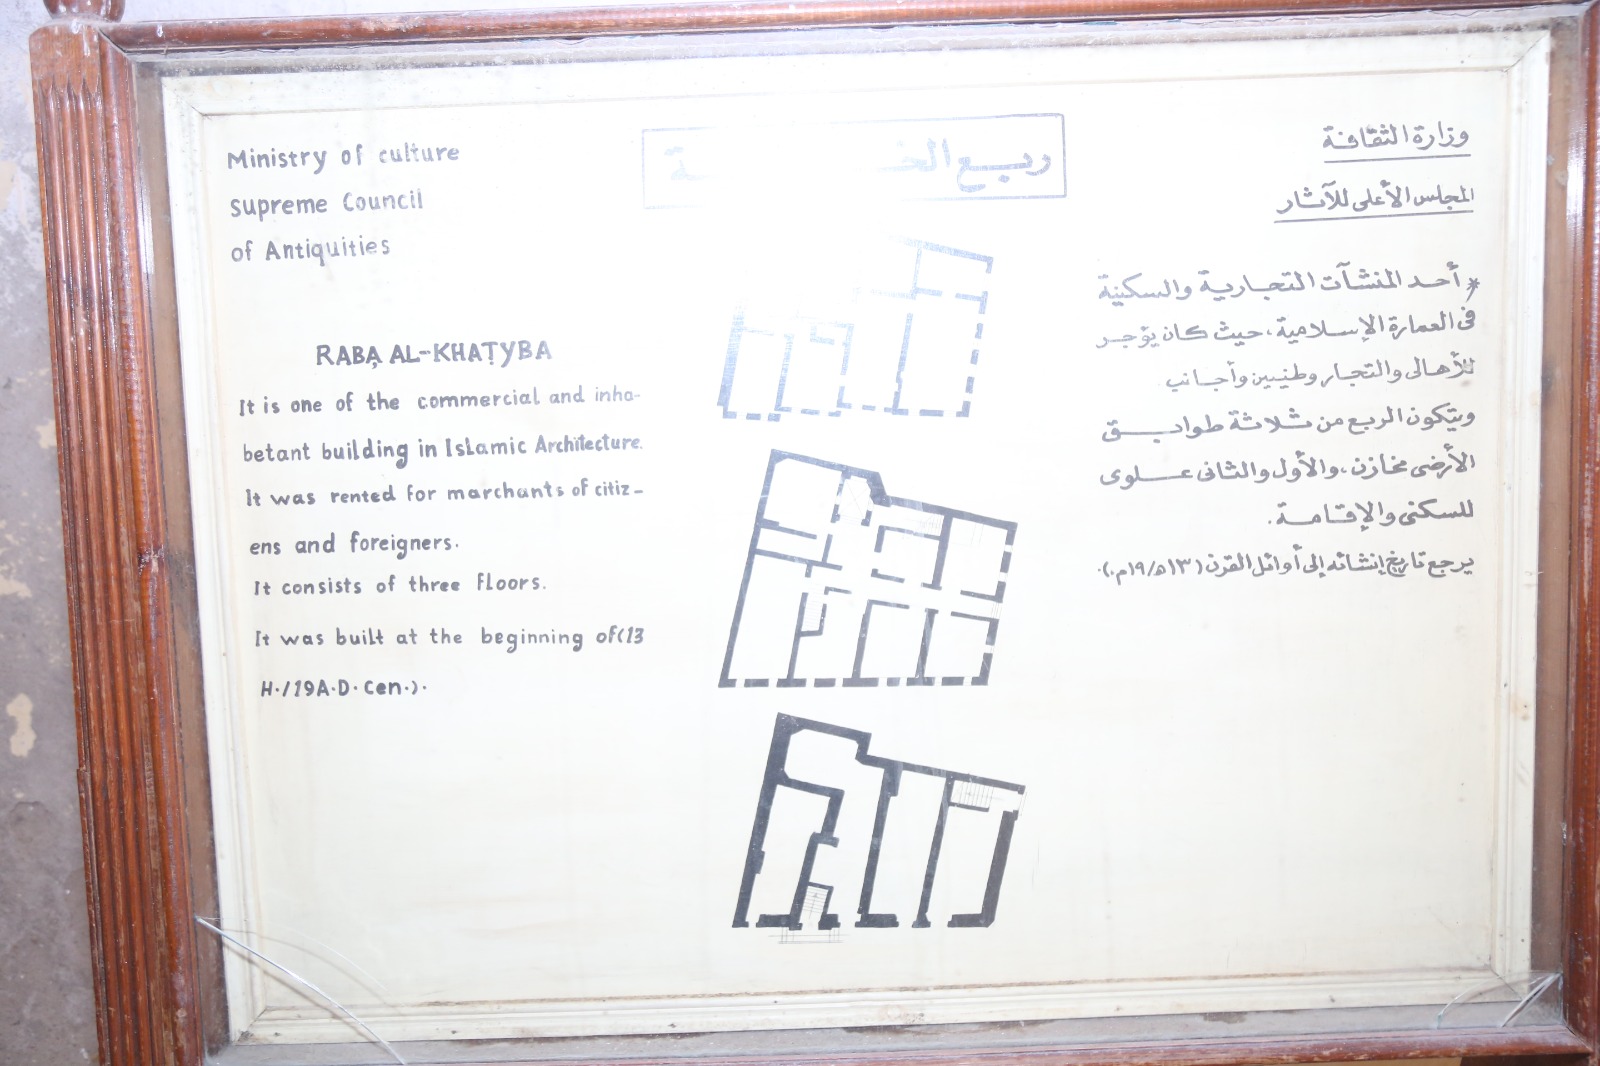 Ministry of culture
supreme Council
of Antiquities
RABA AL-KHATYBA
It is one of the commercial and inha-
betant building in Islamic Architecture.
It was rented for marchants of citiz-
ens and foreigners.
It consists of three floors.
It was built at the beginning of(13
H./19A.D. Cen.).
ربع
وزارة الثقافة
المجلس الأعلى للآثار
* أحد المنشآت التجارية والسكنية
فى العمارة الإسلامية، حيث كان يؤجر
للأهالى والتجار وطنيين وأجانب.
ويتكون الربع من ثلاثة طوابق
الأرضى مخازن، والأول والثانى علوى
للسكنى والإقامة.
يرجع تاريخ إنشائه إلى أوائل القرن (١٣هـ/١٩م.).